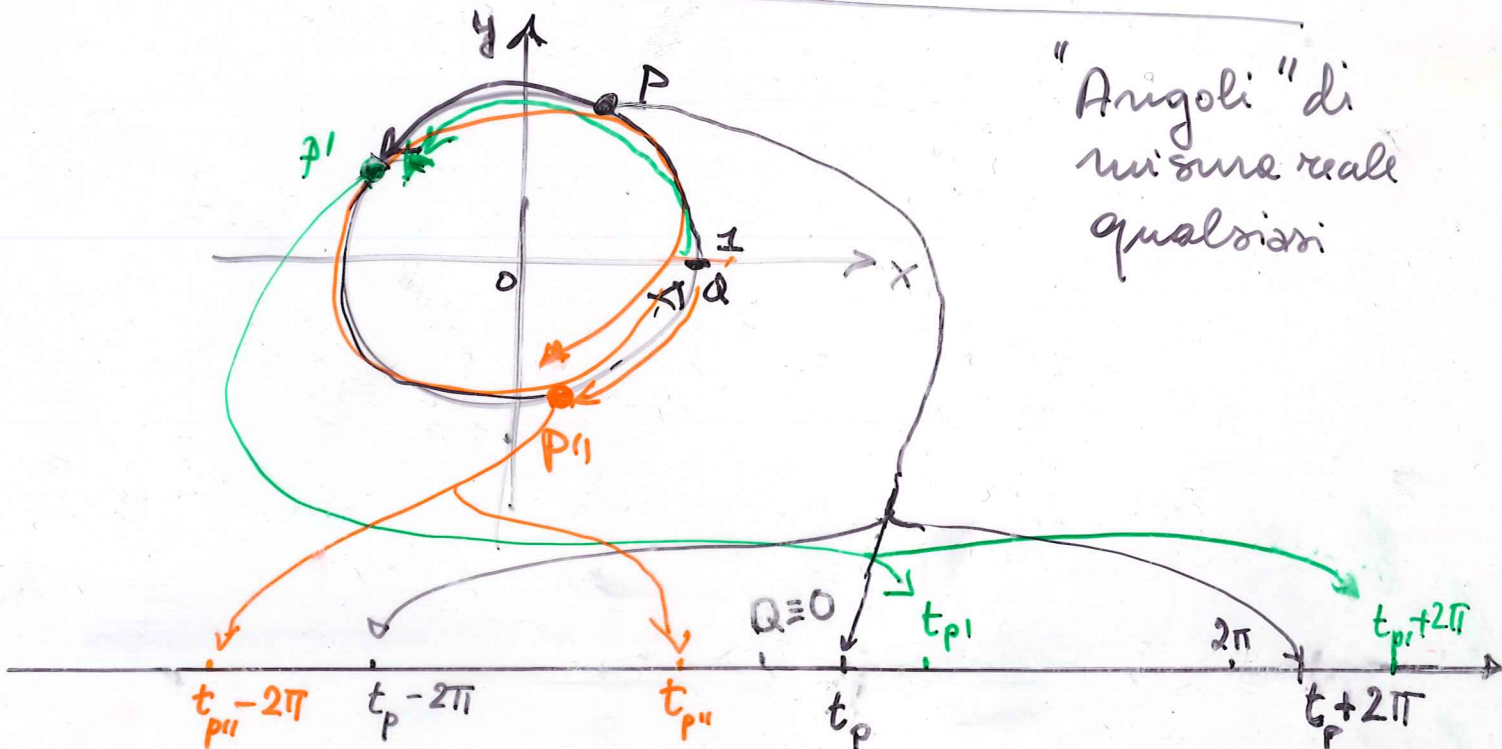 y
P
"Angoli" di
misura reale
qualsiasi
P'
1
0
Q
x
P''
Q≡0
t_P'
2π
t_P'+2π
t_P''-2π
t_P-2π
t_P''
t_P
t_P+2π